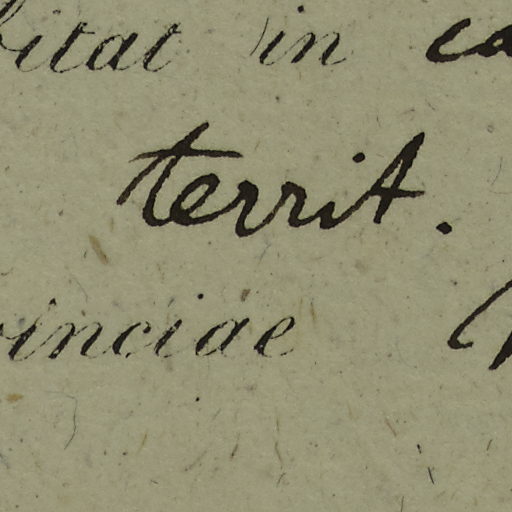 bitat in ca
territ.
vinciae